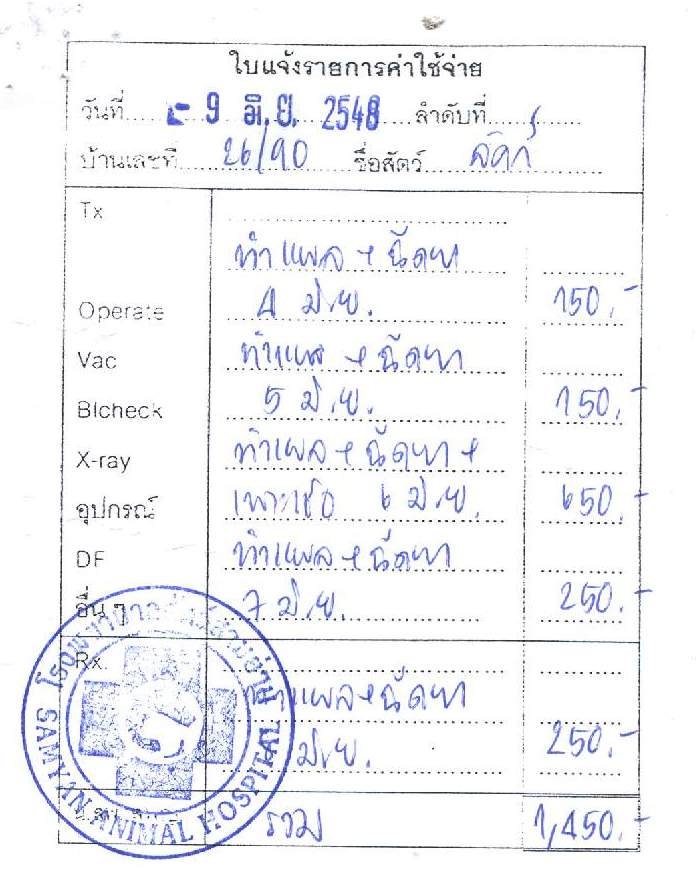 ใบแจ้งรายการค่าใช้จ่าย
วันที่ - 9 มิ.ย. 2548 ลำดับที่
บ้านเลขที่ 26/90 ชื่อสัตว์
Tx
ทำแผล + ฉีดยา
Operate 4 มิ.ย. 150.-
Vac ทำแผล + ฉีดยา
Blcheck 5 มิ.ย. 150.-
X-ray ทำแผล + ฉีดยา +
อุปกรณ์ เพาะเชื้อ 6 มิ.ย. 650.-
DF ทำแผล + ฉีดยา
อื่น ๆ 7 มิ.ย. 250.-
Rx.
ทำแผล + ฉีดยา
มิ.ย. 250.-
รวม 1,450.-
โรงพยาบาลสัตว์สามย่าน
SAMYAN ANIMAL HOSPITAL